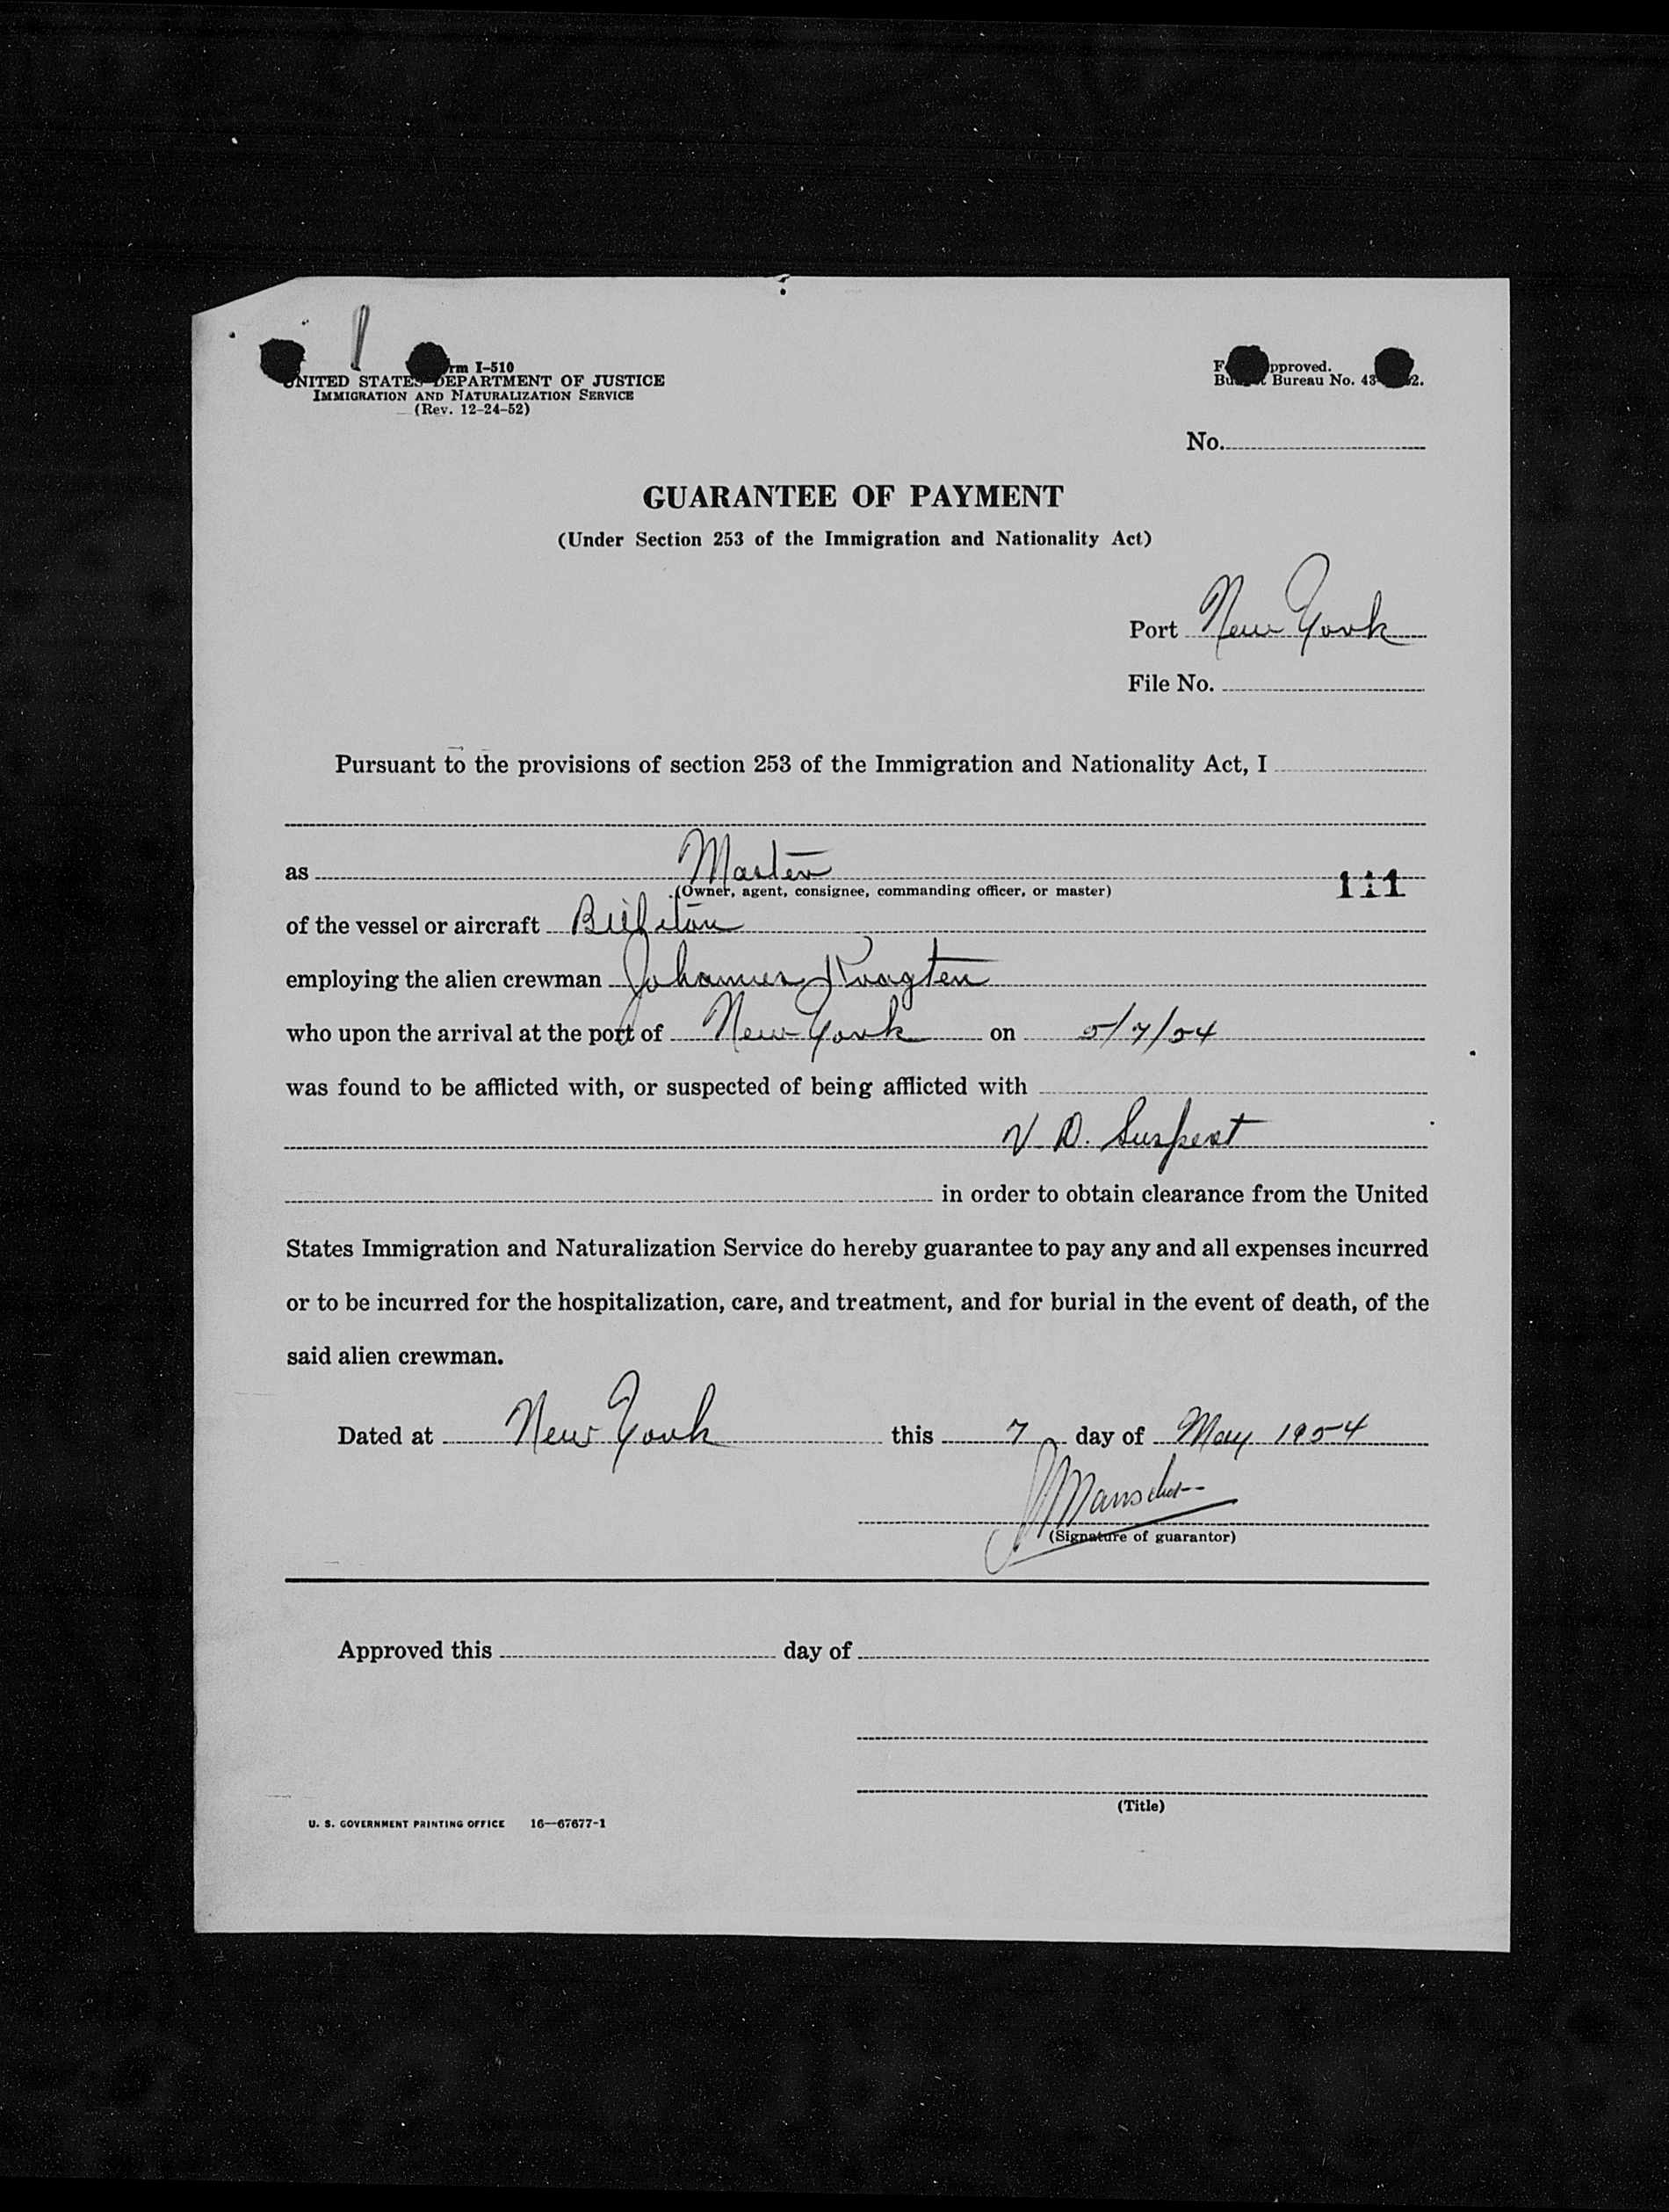 rm I-510
UNITED STATES DEPARTMENT OF JUSTICE
IMMIGRATION AND NATURALIZATION SERVICE
(Rev. 12-24-52)
pproved.
Bureau No. 43
No.
GUARANTEE OF PAYMENT
(Under Section 253 of the Immigration and Nationality Act)
Port New York
File No.
Pursuant to the provisions of section 253 of the Immigration and Nationality Act, I
as Master
(Owner, agent, consignee, commanding officer, or master)
111
of the vessel or aircraft
employing the alien crewman Johannes
who upon the arrival at the port of New York on 5/7/54
was found to be afflicted with, or suspected of being afflicted with
V. D. Suspect
in order to obtain clearance from the United
States Immigration and Naturalization Service do hereby guarantee to pay any and all expenses incurred
or to be incurred for the hospitalization, care, and treatment, and for burial in the event of death, of the
said alien crewman.
Dated at New York this 7 day of May 1954
(Signature of guarantor)
Approved this day of
(Title)
U. S. GOVERNMENT PRINTING OFFICE 16—67677-1